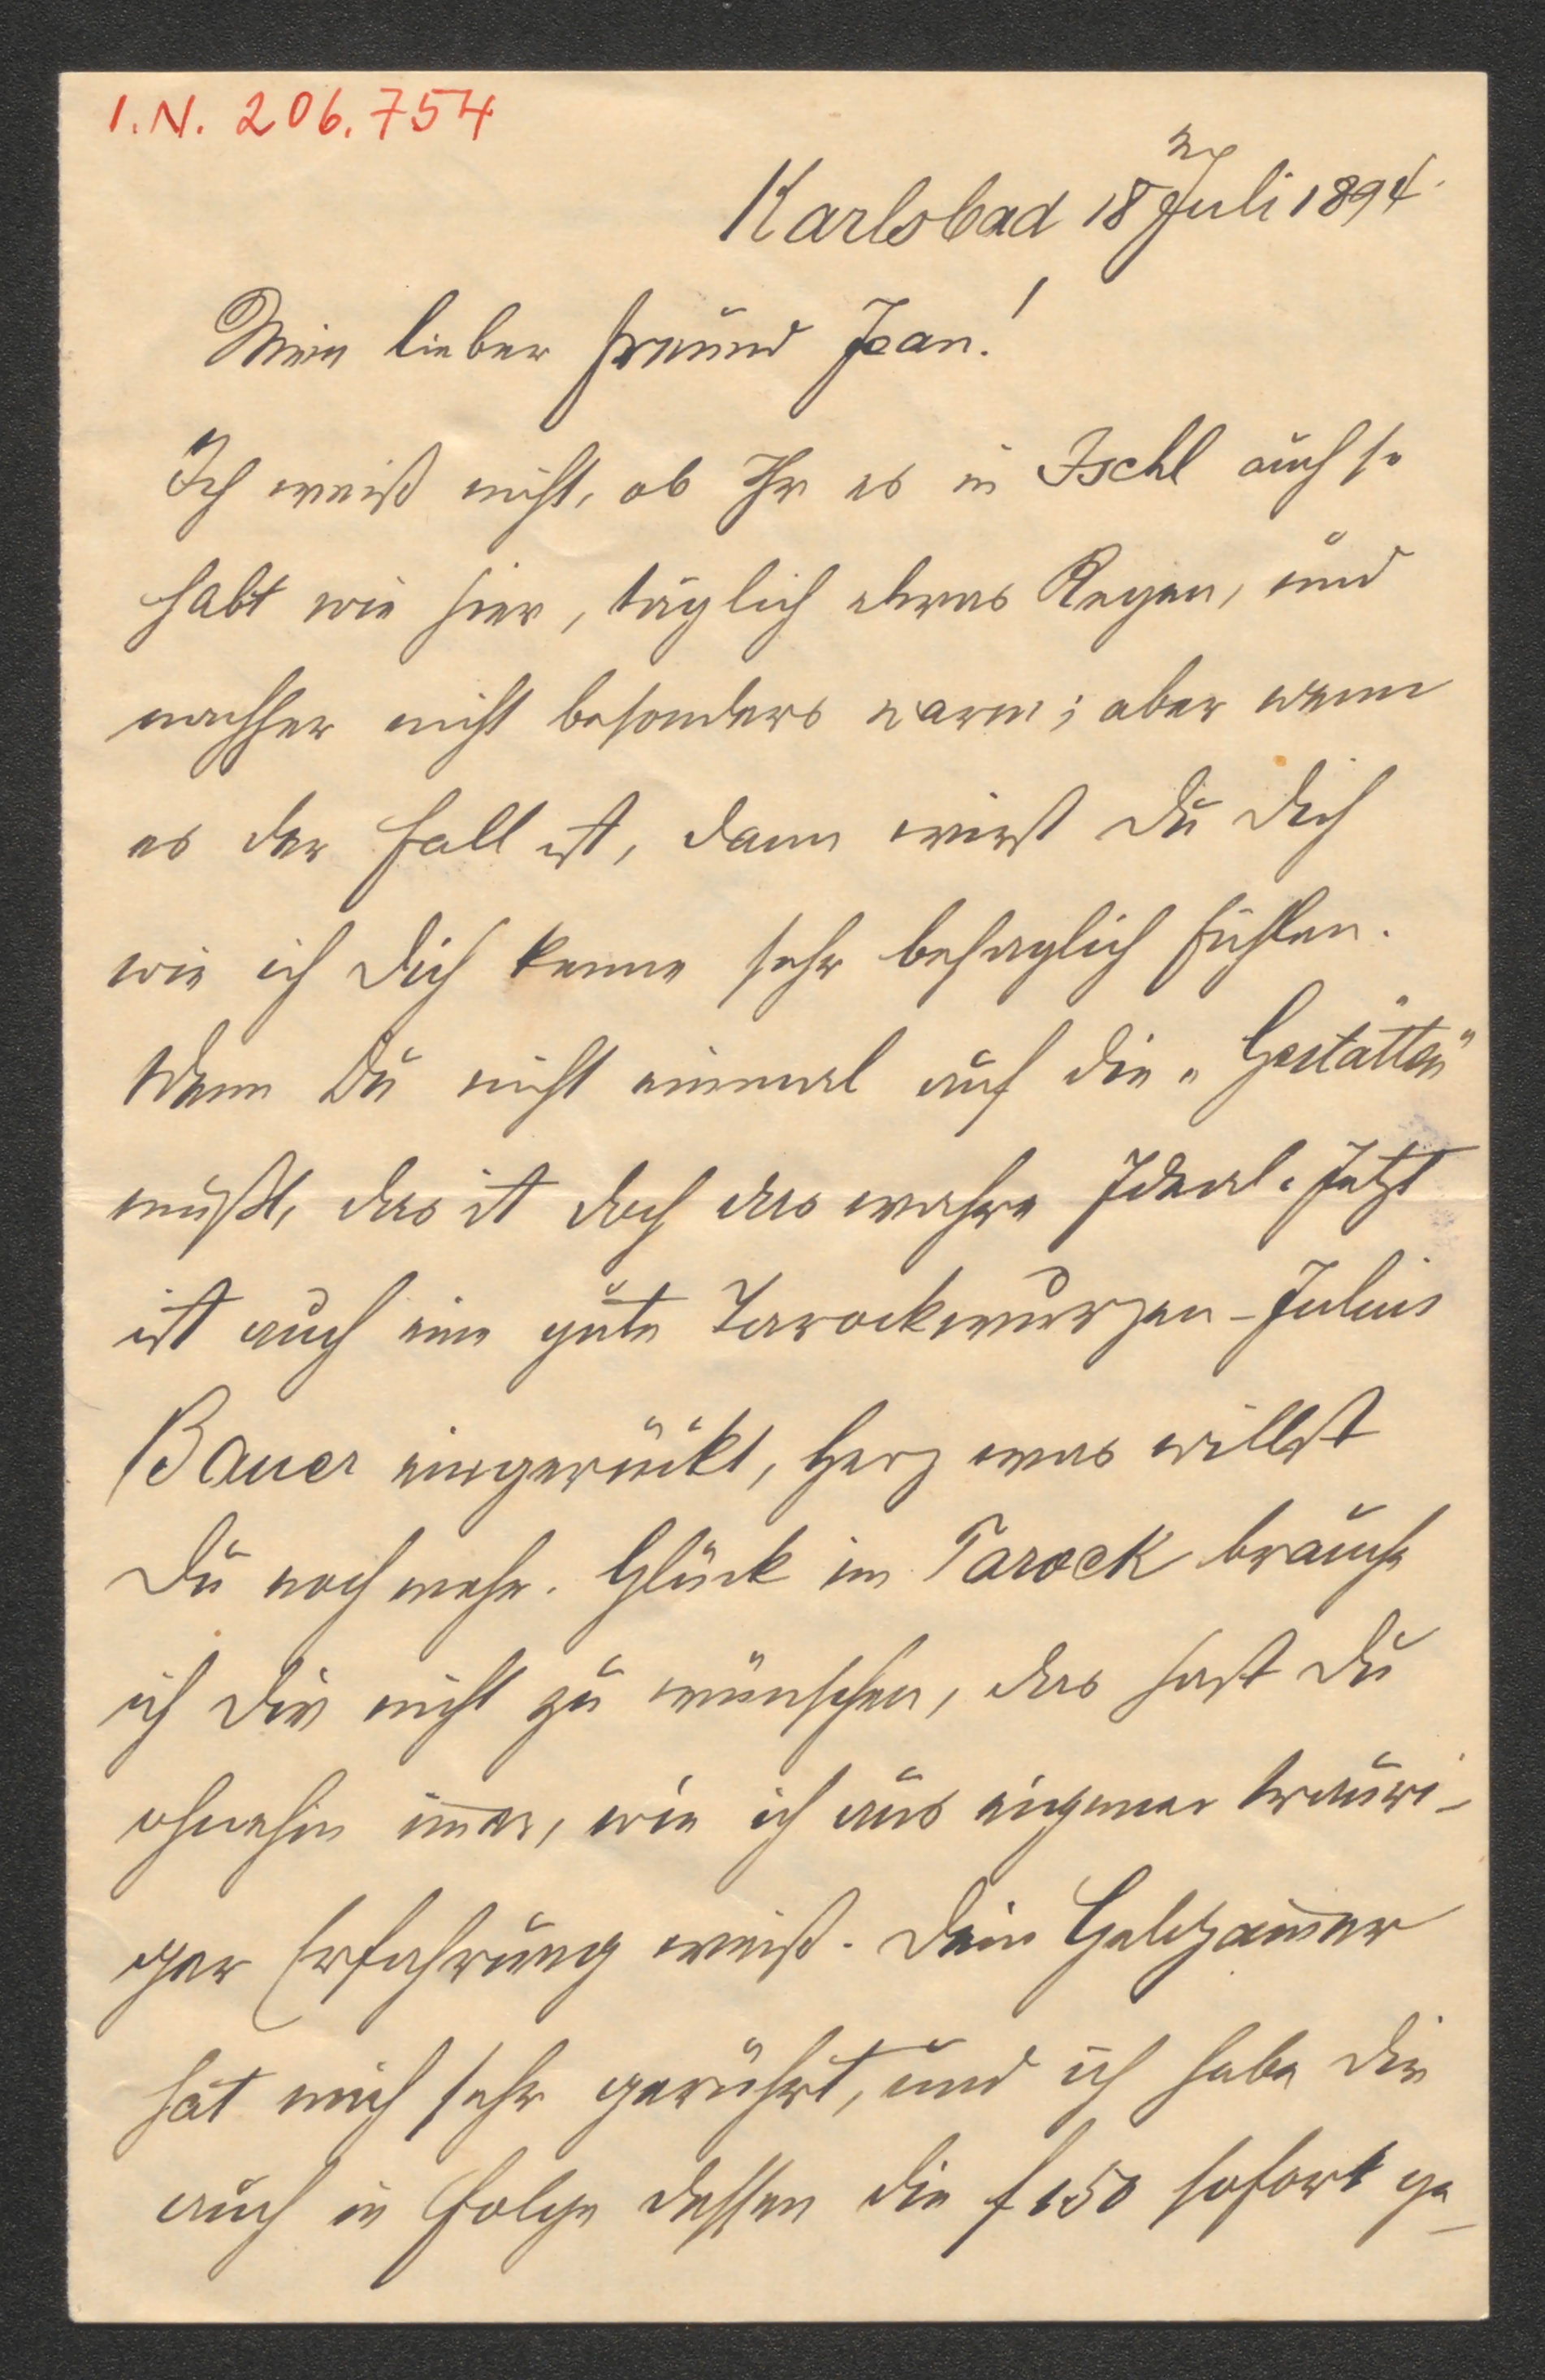 I.N. 206.754
Karlsbad 18 Juli 1894.
Mein lieber Freund Jean!
Ich weiß nicht, ob Ihr es in Ischl auch so
habt wie hier, täglich etwas Regen, und
nachher nicht besonders warm; aber wenn
es der Fall ist, dann wirst Du Dich
wie ich Dich kenne sehr behaglich fühlen.
Wenn Du nicht einmal auf die „Gestätten"
mußt, das ist doch das wahre Ideal. Jetzt
ist auch eine gute Tarockwurzen - Julius
Bauer eingerückt, Herz was willst
Du noch mehr. Glück im Tarock brauche
ich Dir nicht zu wünschen, das hast Du
ohnehin im̅er, wie ich aus eigener trauri-
ger Erfahrung weiß. Dein
hat mich sehr gerührt, und ich habe Dir
auch in Folge dessen die f 150 sofort ge-